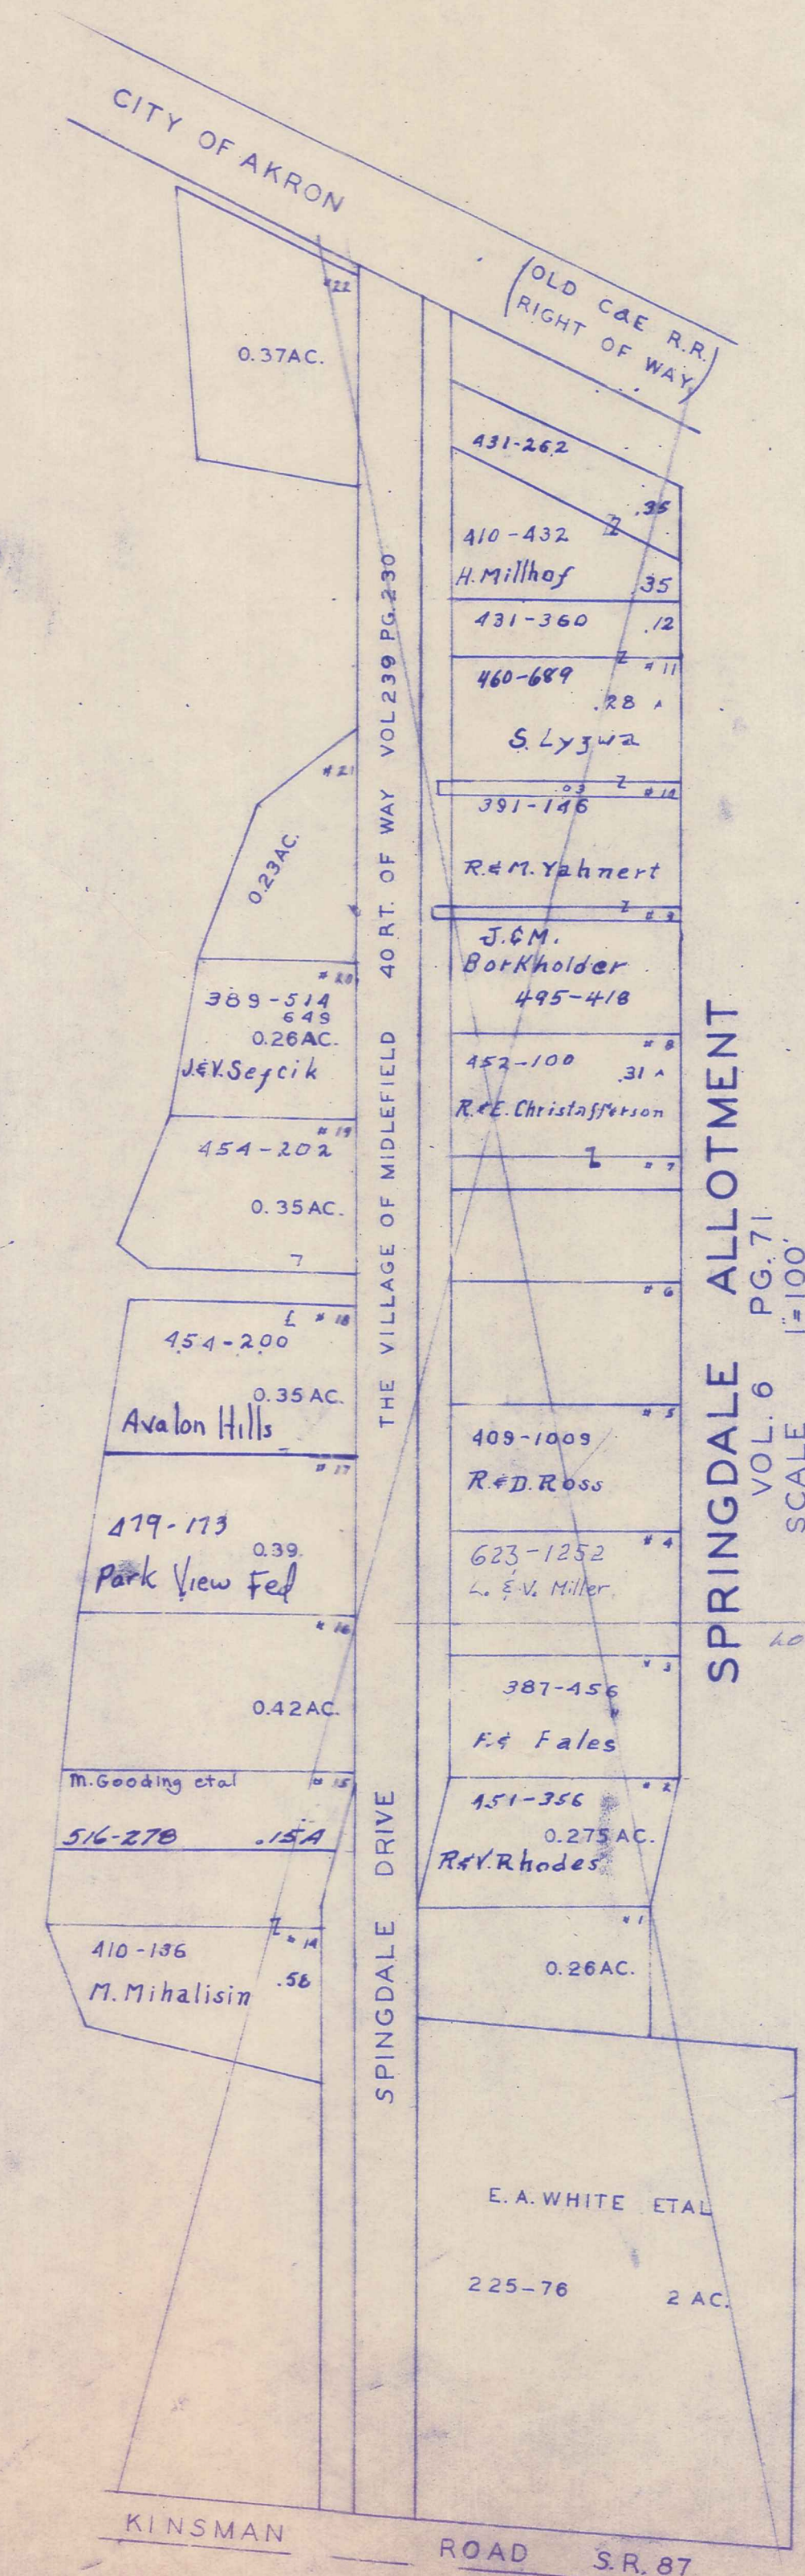 CITY OF AKRON
(OLD C&E R.R.
RIGHT OF WAY)
#22
0.37AC.
431-262
.35
410-432
H. Millhof .35
431-360 .12
#11
460-689
.28 A
S. Lyzwa
.03 #10
391-146
R. & M. Yahnert
#9
J. & M.
Borkholder
495-418
#8
452-100 .31 A
R. & E. Christafferson
#7
#6
#5
409-1009
R. & D. Ross
#4
623-1252
L. & V. Miller
#3
387-456
F. & Fales
#2
451-356
0.275 AC.
R & V. Rhodes
#1
0.26AC.
E. A. WHITE ETAL
225-76 2 AC.
#21
0.23AC.
#20
389-514
649
0.26AC.
J. & V. Sejcik
#19
454-202
0.35AC.
#18
454-200
0.35 AC.
Avalon Hills
#17
479-173
0.39
Park View Fed
#16
0.42AC.
M. Gooding etal #15
516-278 .15A
#14
410-136
.58
M. Mihalisin
THE VILLAGE OF MIDLEFIELD 40 RT. OF WAY VOL 239 PG. 230
SPINGDALE DRIVE
SPRINGDALE ALLOTMENT
VOL. 6 PG. 71
SCALE 1"=100'
KINSMAN ROAD S.R. 87